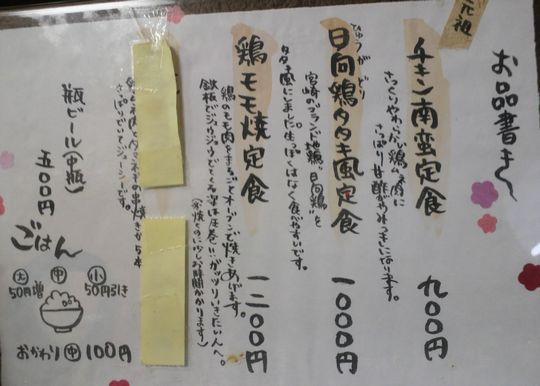 お品書き
元祖
チキン南蛮定食 九〇〇円
さっくりやわらかい鶏ムネ肉に
さっぱり甘酢がやみつきになります。
ひゅうがどり
日向鶏タタキ風定食 一〇〇〇円
宮崎のブランド地鶏"日向鶏"を
タタキ風にしました。生っぽくはなく食べやすいです。
鶏モモ焼定食 一二〇〇円
鶏のモモ肉をまるごとオーブンで焼きあげます。
鉄板でジュウジュウでてくる姿は圧巻。ガッツリいきたい人へ。
(※焼くのに少しお時間かかります)
さっぱりしていてジューシーです。
瓶ビール(中瓶) 五〇〇円
ごはん
大 中 小
50円増 50円引き
おかわり 中 100円